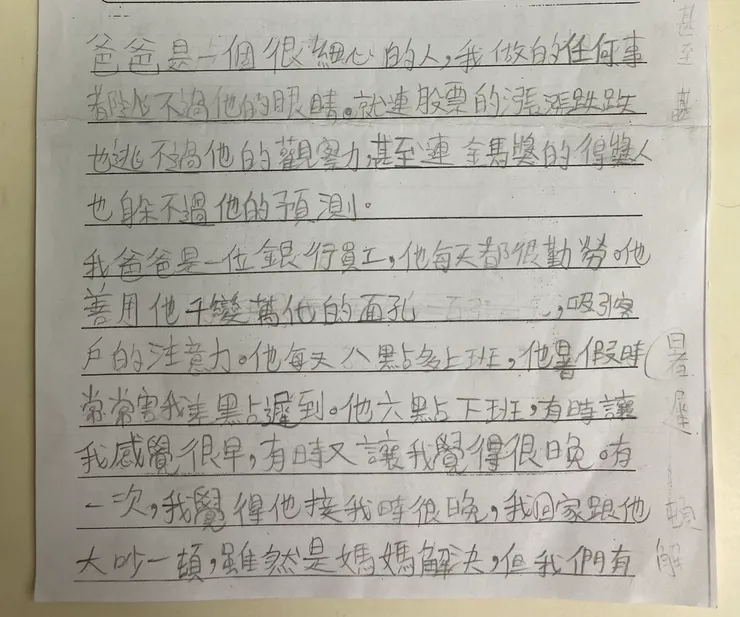 爸爸是一個很細心的人,我做的任何事
都逃不過他的眼睛。就連股票的漲漲跌跌
也逃不過他的觀察力,甚至連金馬獎的得獎人
也躲不過他的預測。
我爸爸是一位銀行員工,他每天都很勤勞。他
善用他千變萬他的面孔,吸引客
戶的注意力。他每天八點多上班,他暑假時
常常害我差點遲到。他六點下班,有時讓
我感覺很早,有時又讓我覺得很晚。有
一次,我覺得他接我時很晚,我回家跟他
大吵一頓,雖然是媽媽解決,但我們有
甚至
暑
遲
頓
解